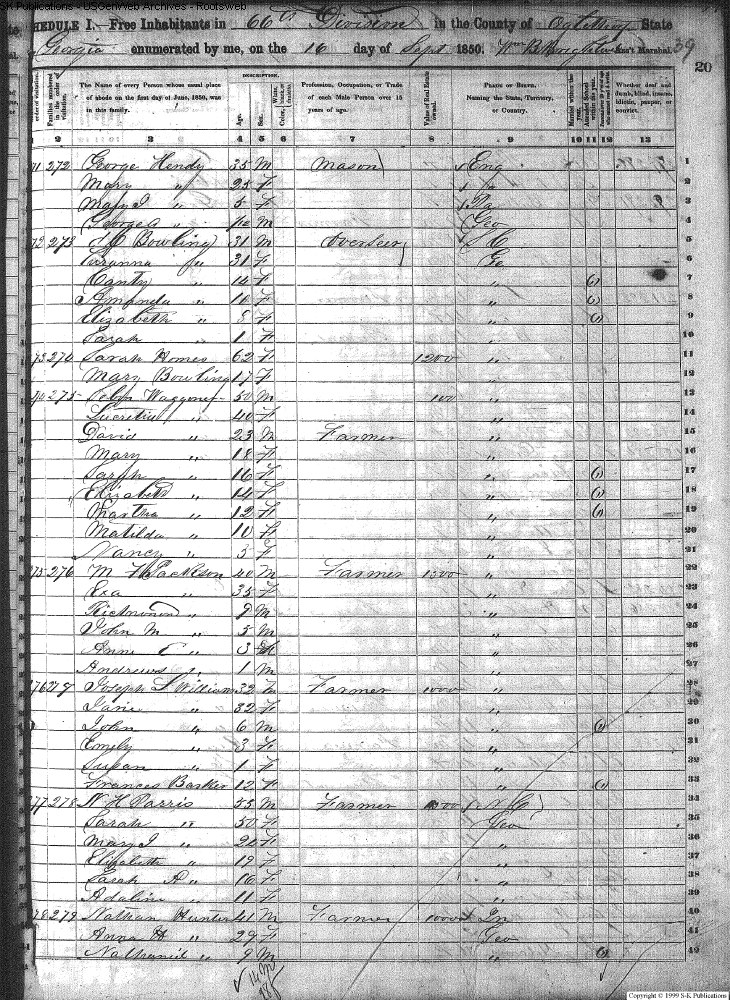 S-K Publications - USGenWeb Archives - RootsWeb
SCHEDULE I.—Free Inhabitants in 66th Division in the County of State
Georgia enumerated by me, on the 16 day of Sept 1850. Ass't Marshal. 39
20
DESCRIPTION.
Families numbered in the order of visitation.
The Name of every Person whose usual place of abode on the first day of June, 1850, was in this family.
Age.
Sex.
Color, White, black, or mulatto.
Profession, Occupation, or Trade of each Male Person over 15 years of age.
Value of Real Estate owned.
PLACE OF BIRTH. Naming the State, Territory, or Country.
Married within the year.
Attended School within the year.
Whether deaf and dumb, blind, insane, idiotic, pauper, or convict.
2 3 4 5 6 7 8 9 10 11 12 13
71 272 George Hendy 35 M Mason Eng 1
Mary " 25 F " 2
Mary J " 5 F Pa 3
George A " M Geo 4
72 273 Bowling 31 M Overseer S C 5
" 31 F Ge 6
Canty " 14 F " 1 7
Amanda " 10 F " 1 8
Elizabeth " 8 F " 1 9
Sarah " 1 F " 10
73 274 Sarah Homes 62 F 1200 " 11
Mary Bowling 17 F " 12
275 50 M 100 " 13
Lucretia " 40 F " 14
David " 23 M Farmer " 15
Mary " 18 F " 16
Sarah " 16 F " 1 17
Elizabeth " 14 F " 1 18
Martha " 12 F " 1 19
Matilda " 10 F " 20
Nancy " 3 F " 21
75 276 M Jackson 40 M Farmer 1500 " 22
" 35 F " 23
Richmond " 9 M " 24
John M " 5 M " 25
Ann C " 3 " 26
Andrew " 1 M " 27
76 277 Joseph L William 32 M Farmer 1000 "
Jane " 32 F "
John " 6 M " 1
Emily " 3 F "
Susan " 1 F "
Frances Barker 12 F " 1 33
77 278 W H Parris 55 M Farmer N C 34
Sarah " 50 F Geo 35
Mary J " 20 F " 36
Elizabeth " 19 F " 37
Sarah A " 16 F " 38
Adaline " 11 F " 39
78 279 Nathan Hunter 41 M Farmer 1000 40
Anna H " 29 F Geo 41
Nathaniel " 9 M " 1 42
14 M
Copyright © 1999 S-K Publications